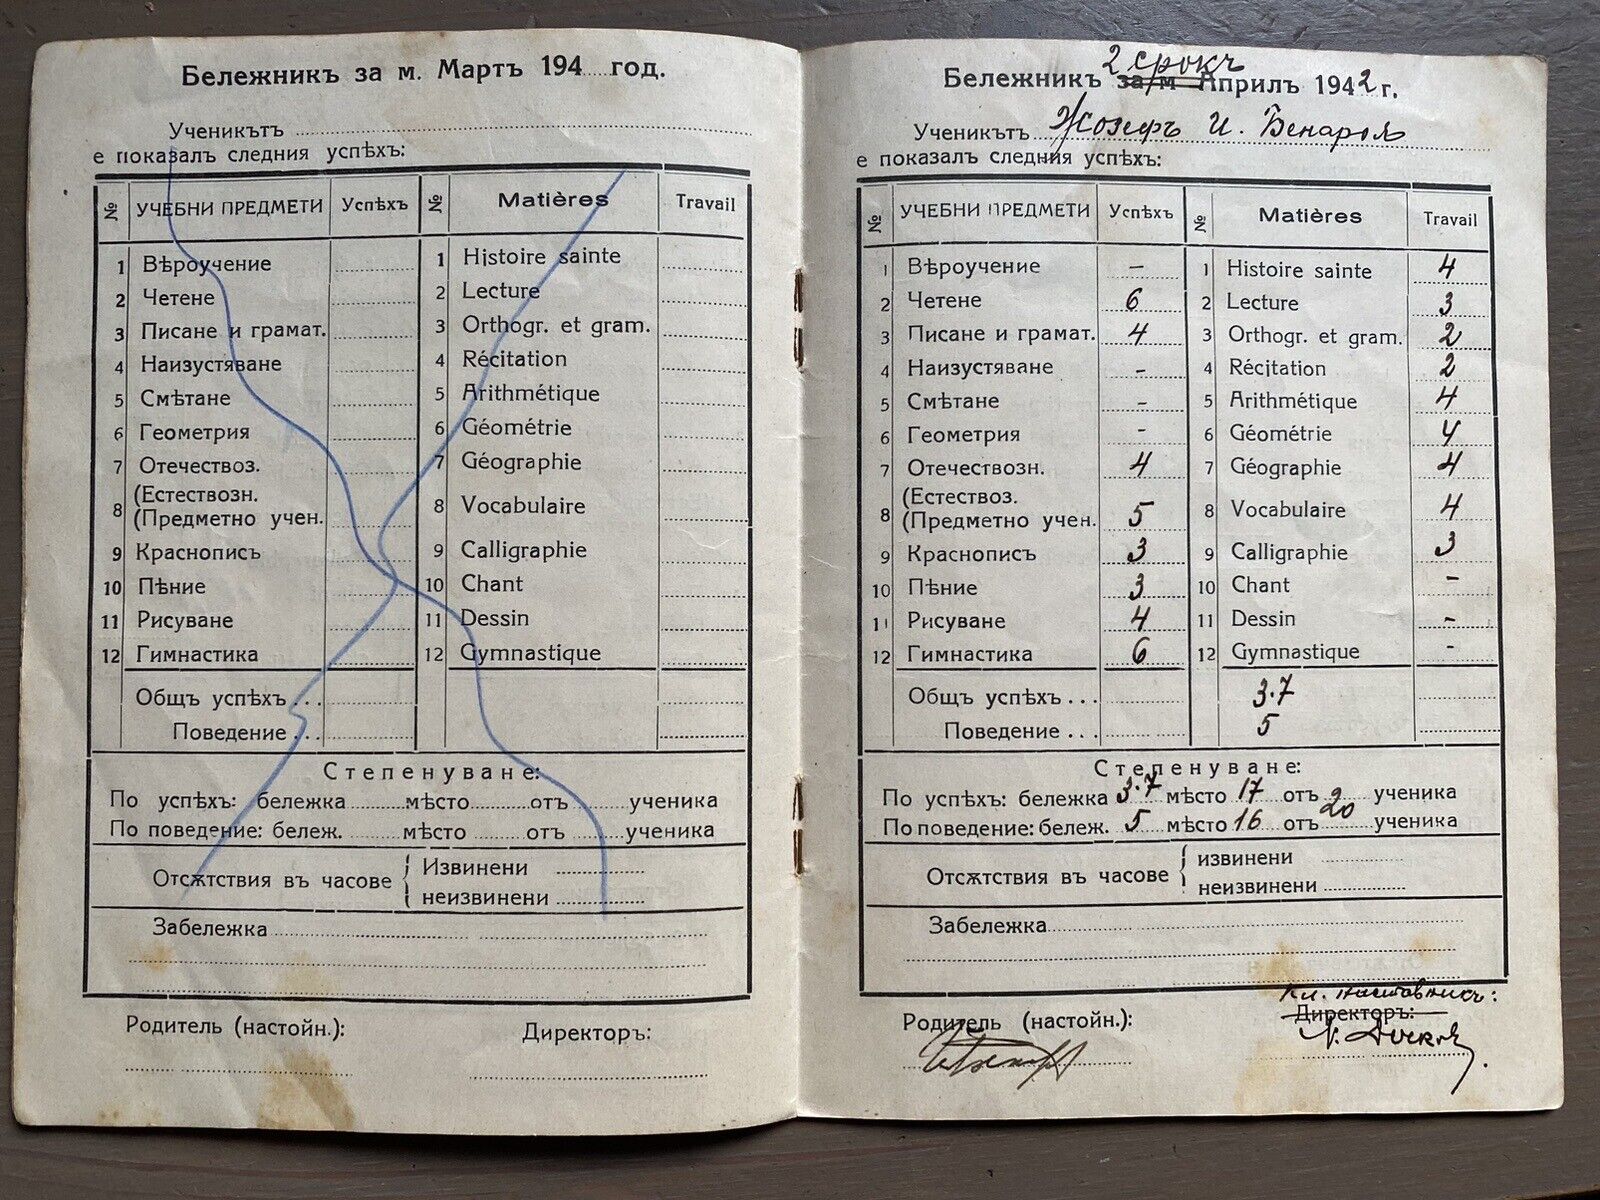 Бележникъ за м. Мартъ 194 год.
Ученикътъ
е показалъ следния успѣхъ:
№ УЧЕБНИ ПРЕДМЕТИ Успѣхъ № Matières Travail
1 Вѣроучение 1 Histoire sainte
2 Четене 2 Lecture
3 Писане и грамат. 3 Orthogr. et gram.
4 Наизустяване 4 Récitation
5 Смѣтане 5 Arithmétique
6 Геометрия 6 Géométrie
7 Отечествоз. 7 Géographie
8 (Естествозн. 8 Vocabulaire
(Предметно учен.
9 Краснописъ 9 Calligraphie
10 Пѣние 10 Chant
11 Рисуване 11 Dessin
12 Гимнастика 12 Gymnastique
Общъ успѣхъ...
Поведение...
Степенуване:
По успѣхъ: бележка мѣсто отъ ученика
По поведение: бележ. мѣсто отъ ученика
Отсѫтствия въ часове { Извинени
неизвинени
Забележка
Родитель (настойн.): Директоръ:
2 срокъ
Бележникъ за м Априлъ 1942 г.
Ученикътъ Жозефъ И. Бенароя
е показалъ следния успѣхъ:
№ УЧЕБНИ ПРЕДМЕТИ Успѣхъ № Matières Travail
1 Вѣроучение - 1 Histoire sainte 4
2 Четене 6 2 Lecture 3
3 Писане и грамат. 4 3 Orthogr. et gram. 2
4 Наизустяване - 4 Récitation 2
5 Смѣтане - 5 Arithmétique 4
6 Геометрия - 6 Géométrie 4
7 Отечествозн. 4 7 Géographie 4
8 (Естествоз. 8 Vocabulaire 4
(Предметно учен. 5
9 Краснописъ 3 9 Calligraphie 3
10 Пѣние 3 10 Chant -
11 Рисуване 4 11 Dessin -
12 Гимнастика 6 12 Gymnastique -
Общъ успѣхъ... 3.7
Поведение... 5
Степенуване:
По успѣхъ: бележка 3.7 мѣсто 17 отъ 20 ученика
По поведение: бележ. 5 мѣсто 16 отъ 20 ученика
Отсѫтствия въ часове { извинени
неизвинени
Забележка
Кл. наставникъ:
Родитель (настойн.): Директоръ: